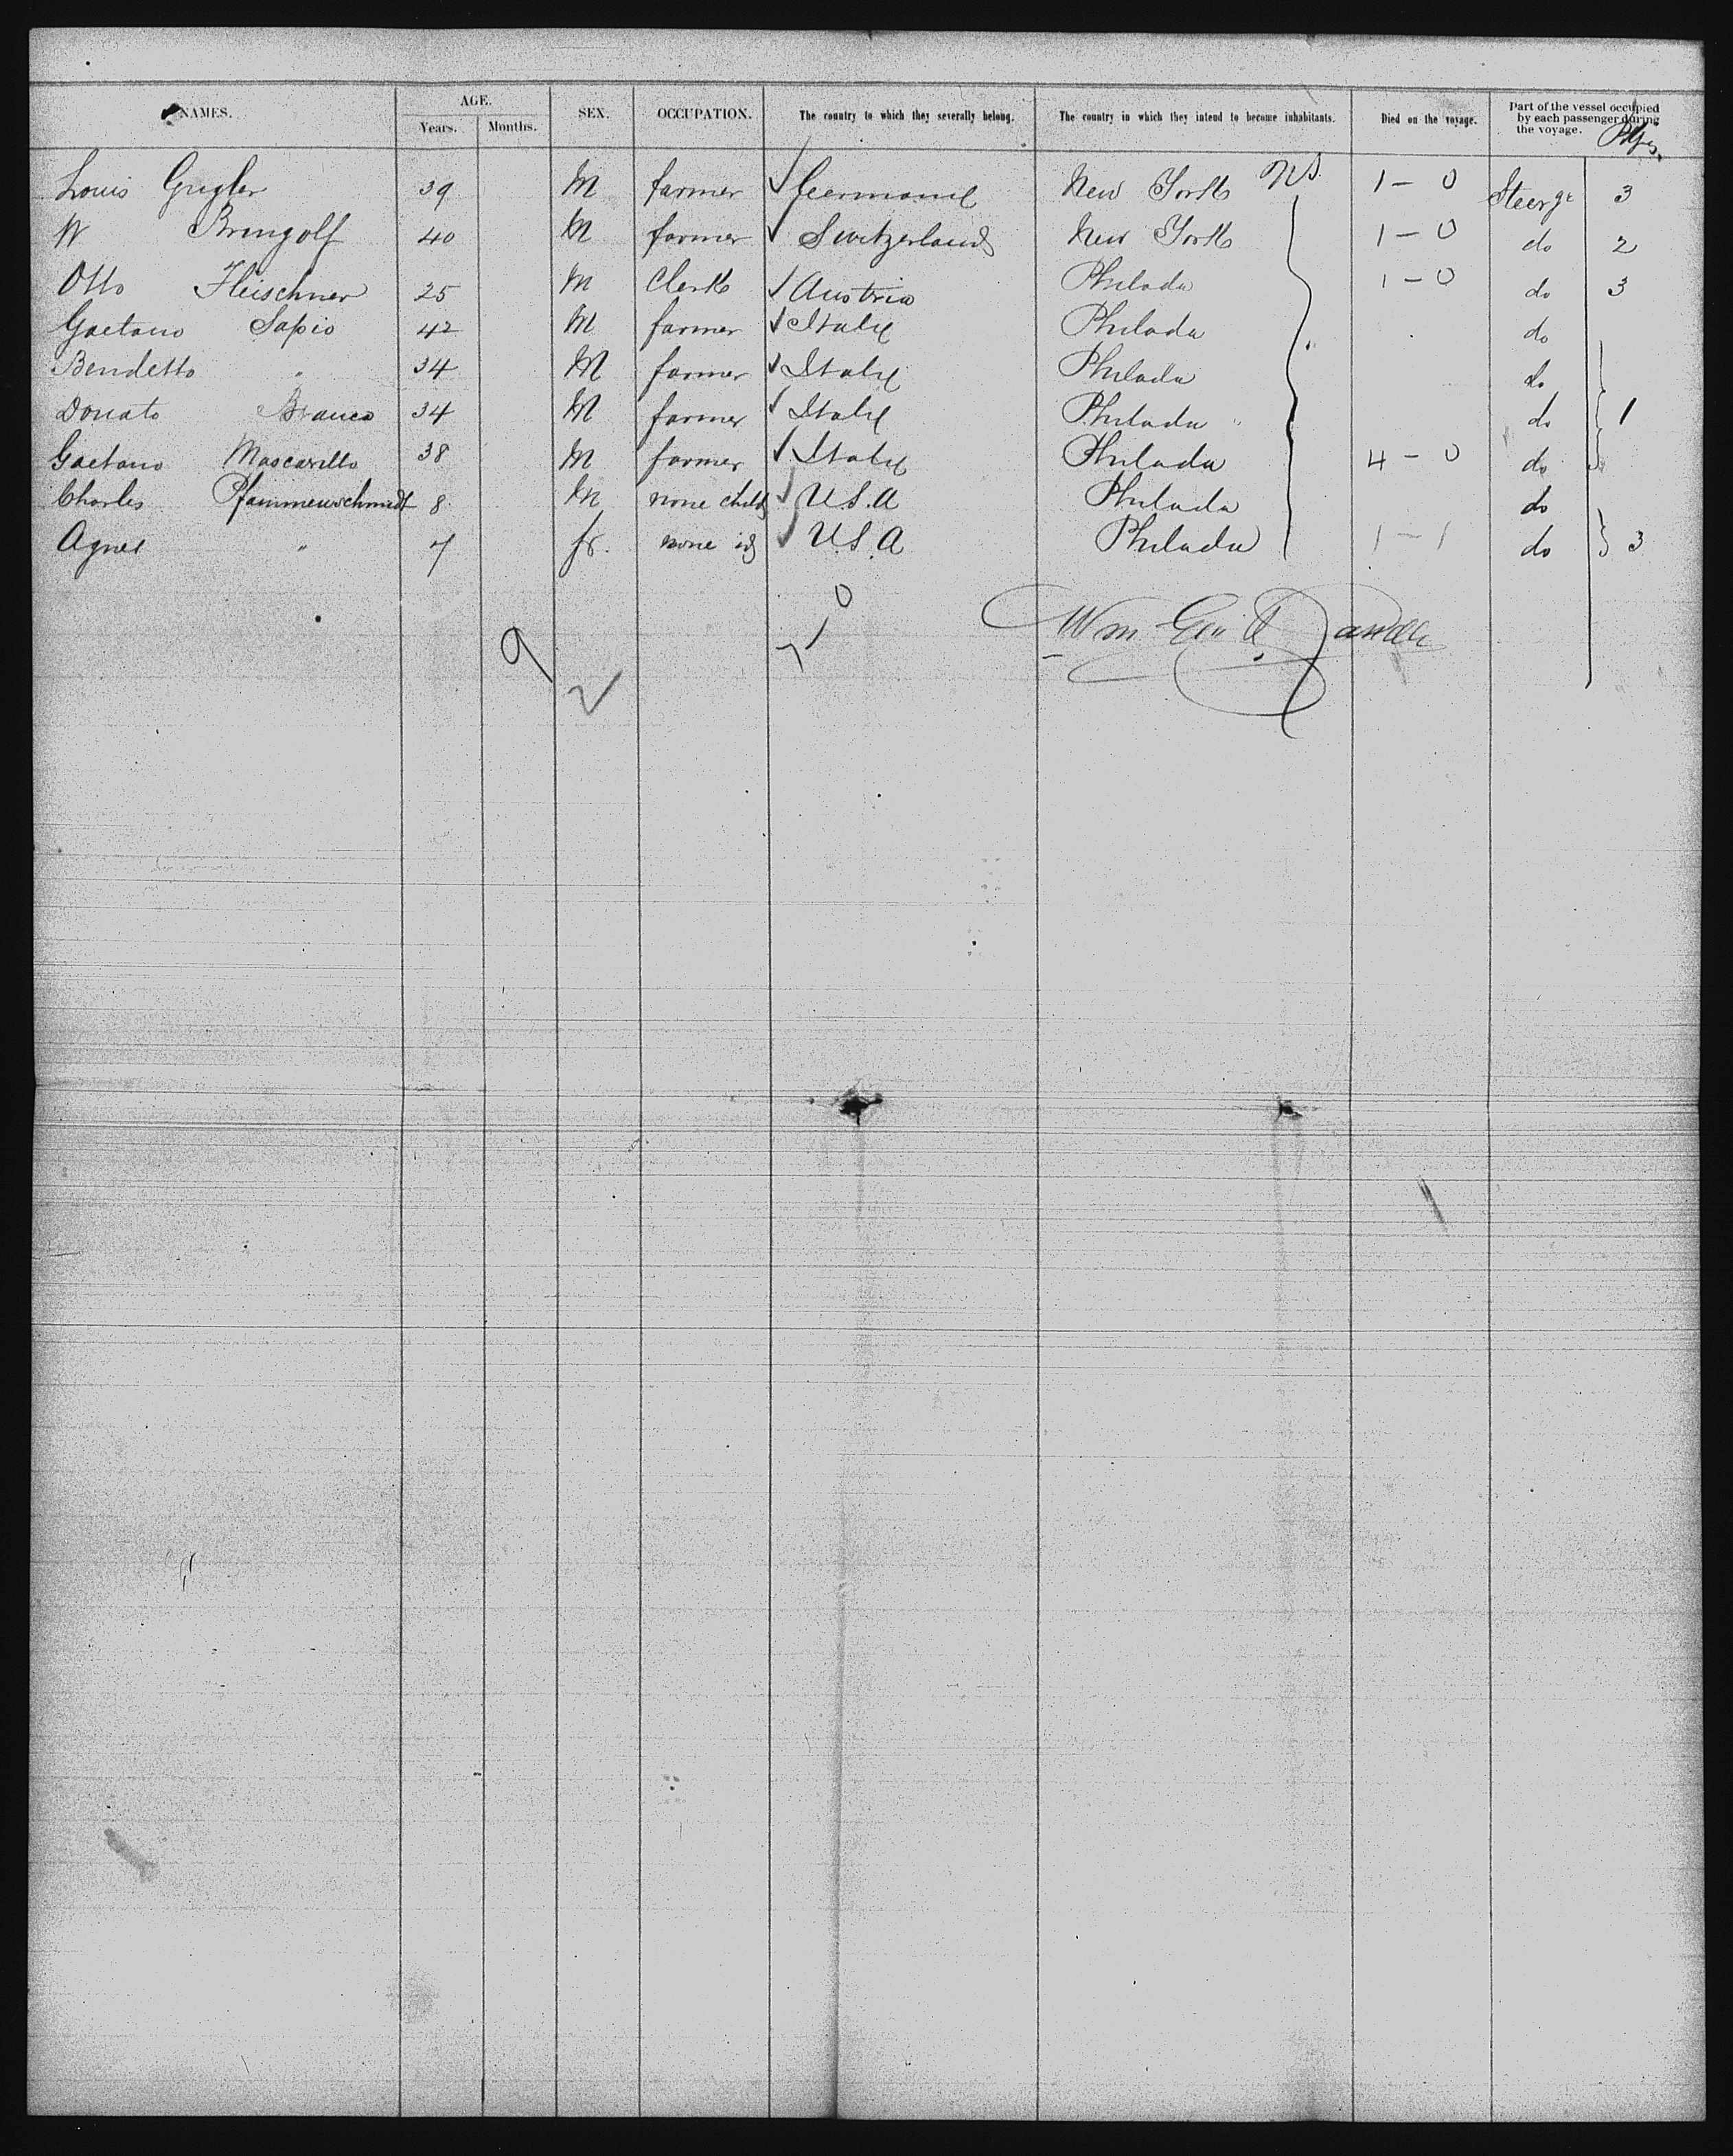 NAMES. AGE. Years. Months. SEX. OCCUPATION. The country to which they severally belong. The country in which they intend to become inhabitants. Died on the voyage. Part of the vessel occupied by each passenger during the voyage. Pkgs.
Louis Gugler 39 M farmer ✓ Germany New York 1 - 0 Steerge 3
W Bringolf 40 M farmer ✓ Switzerland New York 1 - 0 do 2
Otto Fleischner 25 M Clerk ✓ Austria Philada 1 - 0 do 3
Gaetano Sapio 42 M farmer ✓ Italy Philada do
Bendetto " 34 M farmer ✓ Italy Philada do
Donato Branco 34 M farmer ✓ Italy Philada do 1
Gaetano Mascarillo 38 M farmer ✓ Italy Philada 4 - 0 do
Charles Pfammenschmidt 8 M none child ✓ U.S.A Philada do
Agnes " 7 f. none id ✓ U.S.A Philada 1 - 1 do 3
9